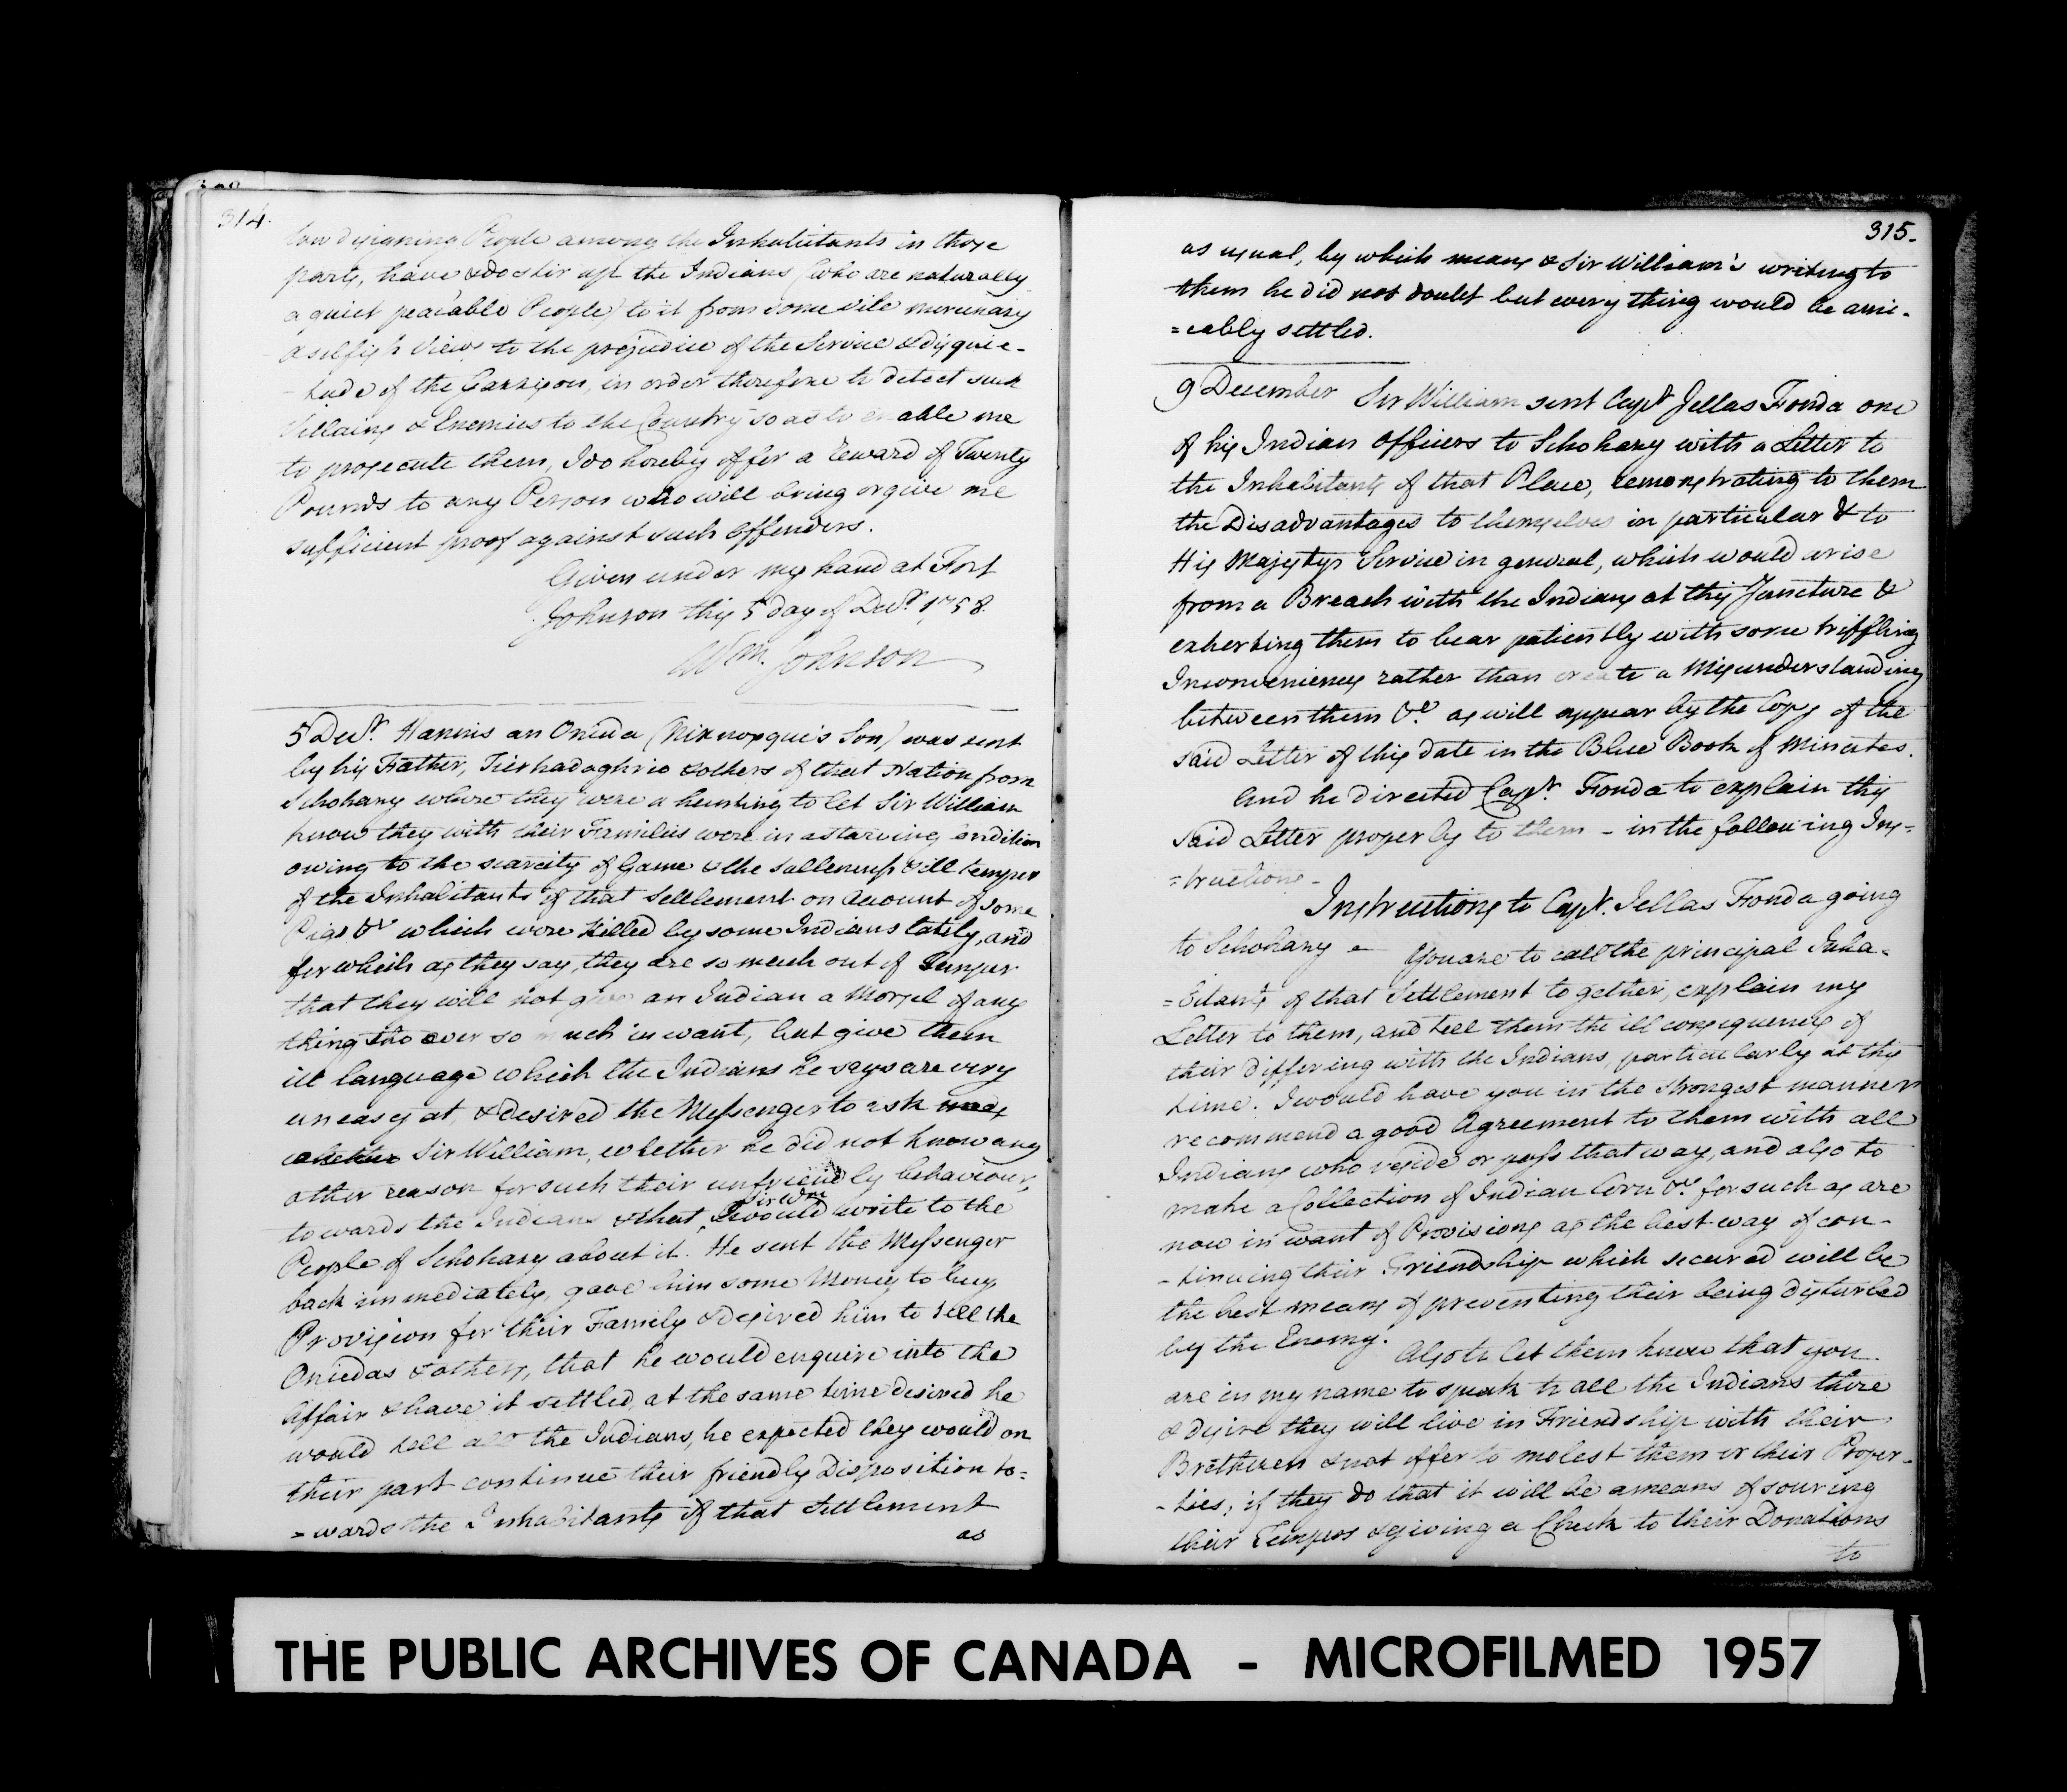 314.
low designing People among the Inhabitants in those
parts, have & do stir up the Indians (who are naturally
a quiet peacable People) to it from some vile mercenary
& selfish Views to the prejudice of the Service & disquie-
-tude of the Garrison, in order therefore to detect such
Villains & Enemies to the Country so as to enable me
to prosecute them, I do hereby offer a reward of Twenty
Pounds to any Person who will bring or give me
sufficient proof against such Offenders.
Given under my hand at Fort
Johnson this 5 day of Decr. 1758.
Wm. Johnson
5 Decr. Hannis an Oneida ( Son) was sent
by his Father, & others of that Nation from
Schohary where they were a hunting to let Sir William
know they with their Families were in a starving Condition
owing to the scarcity of Game & the sullenness & ill temper
of the Inhabitants of that Settlement on Account of some
Pigs &c which were killed by some Indians lately, and
for which as they say, they are so much out of Temper
that they will not give an Indian a Morsel of any
thing tho ever so much in want, but give them
ill language which the Indians he says are very
uneasy at, & desired the Messenger to ask
whether Sir William, whether he did not know any
other reason for such their unfriendly behaviour,
towards the Indians & that Sir Wm would write to the
People of Schohary about it. He sent the Messenger
back immediately, gave him some Money to buy
Provision for their Family & desired him to tell the
Oniedas & others, that he would enquire into the
Affair & have it settled, at the same time desired he
would tell all the Indians, he expected they would on
their part continue their friendly Disposition to=
=wards the Inhabitants of that Settlement
as
315.
as usual, by which means & Sir William's writing to
them he did not doubt but every thing would be ami-
=cably settled.
9 December Sir William sent Capt. Jellas Fonda one
of his Indian Officers to Schohary with a Letter to
the Inhabitants of that Place, remonstrating to them
the Disadvantages to themselves in particular & to
His Majestys Service in general, which would arise
from a Breach with the Indians at this Juncture &
exherting them to bear patiently with some triffling
Inconveniencys rather than create a Misunderstanding
between them &c. as will appear by the Copy of the
said Letter of this date in the Blue Book of Minutes.
And he directed Capt. Fonda to explain this
said Letter properly to them - in the following Ins=
=tructions -
Instructions to Capt. Jellas Fonda going
to Schohary - You are to call the principal Inha-
=bitants of that Settlement to gether, explain my
Letter to them, and tell them the ill consequences of
their differing with the Indians, particularly at this
time. I would have you in the strongest manner
recommend a good Agreement to them with all
Indians who reside or pass that way, and also to
make a Collection of Indian Corn &c. for such as are
now in want of Provisions as the best way of con-
-tinuing their Friendship which secured will be
the best means of preventing their being disturbed
by the Enemy. Also to let them know that you
are in my name to speak to all the Indians there
& desire they will live in Friendship with their
Brethren & not offer to molest them or their Proper-
-ties; if they do that it will be a means of souring
their Tempers & giving a Check to their Donations
to
THE PUBLIC ARCHIVES OF CANADA - MICROFILMED 1957